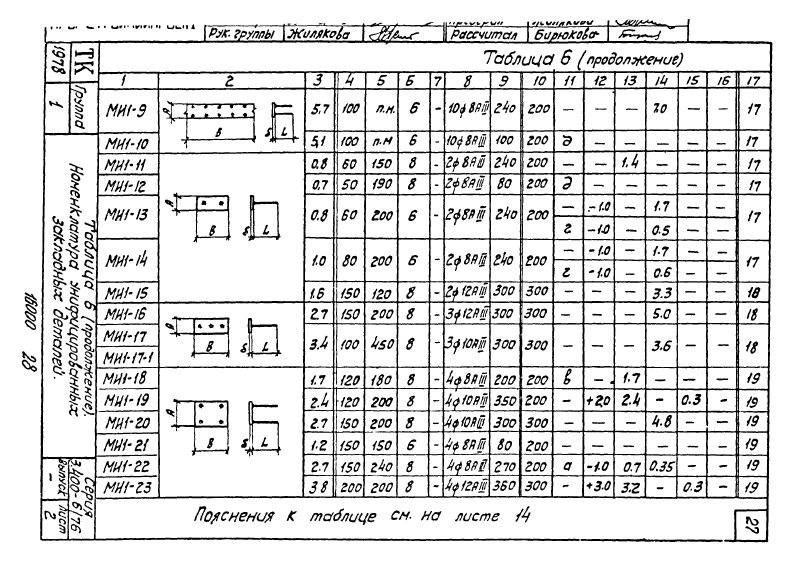 Рук. группы Жилякова Рассчитал Бирюкова
Таблица 6 (продолжение)
1 2 3 4 5 6 7 8 9 10 11 12 13 14 15 16 17
МН1-9 5,7 100 п.м. 6 - 10ϕ8АIII 240 200 — — — 7.0 — — 17
МН1-10 5,1 100 п.м 6 - 10ϕ8АIII 100 200 д — — — — — 17
МН1-11 0.8 60 150 8 - 2ϕ8АIII 240 200 — — 1.4 — — — 17
МН1-12 0.7 50 190 8 - 2ϕ8АIII 80 200 д — — — — — 17
МН1-13 0.8 60 200 6 - 2ϕ8АIII 240 200 — -1.0 — 1.7 — — 17
г -1.0 — 0.5 — —
МН1-14 1.0 80 200 6 - 2ϕ8АIII 240 200 — -1.0 — 1.7 — — 17
г -1.0 — 0.6 — —
МН1-15 1.6 150 120 8 - 2ϕ12АIII 300 300 — — — 3.3 — — 18
МН1-16 2.7 150 200 8 - 3ϕ12АIII 300 300 — — — 5.0 — — 18
МН1-17 3.4 100 450 8 - 3ϕ10АIII 300 300 — — — 3.6 — — 18
МН1-17-1
МН1-18 1.7 120 180 8 - 4ϕ8АIII 200 200 в — 1.7 — — — 19
МН1-19 2.4 120 200 8 - 4ϕ10АIII 350 200 — +2.0 2.4 — 0.3 - 19
МН1-20 2.7 150 200 8 - 4ϕ10АIII 300 300 — — — 4.8 — — 19
МН1-21 1.2 150 150 6 - 4ϕ8АIII 80 200 — — — — — — 19
МН1-22 2.7 150 240 8 - 4ϕ8АIII 270 200 а -1.0 0.7 0.35 — — 19
МН1-23 3.8 200 200 8 - 4ϕ12АIII 360 300 — +3.0 3.2 — 0.3 — 19
В S L
В S L
В S L
В S L
Пояснения к таблице см. на листе 14
27
ТК
1978
Группа
1
Таблица 6 (продолжение).
Номенклатура унифицированных
закладных деталей.
Серия
3.400-6/76
Выпуск Лист
- 2
16000 28